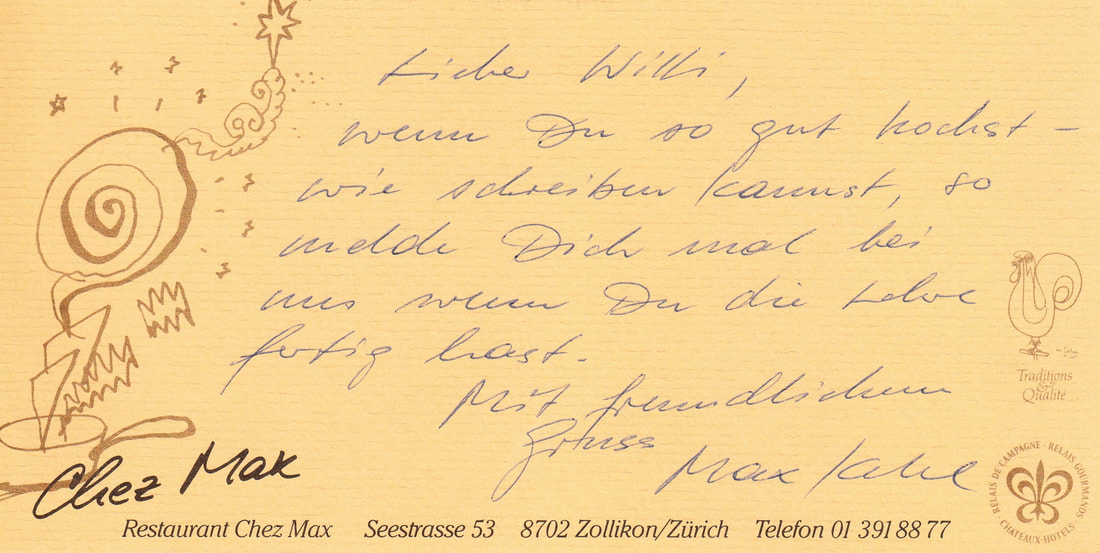 Lieber Willi,
wenn Du so gut kochst -
wie schreiben kannst, so
melde Dich mal bei
uns wenn Du die Lehre
fertig hast.
Mit freundlichem
Gruss
Max Kehl
Traditions
&
Qualité
Chez Max
RELAIS DE CAMPAGNE · RELAIS GOURMANDS
CHATEAUX-HOTELS
Restaurant Chez Max Seestrasse 53 8702 Zollikon/Zürich Telefon 01 391 88 77